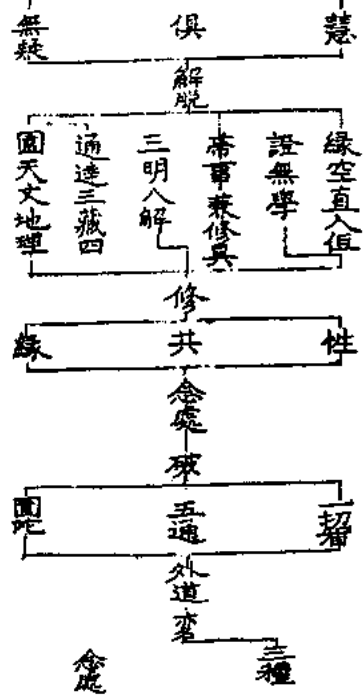 慧
俱
無疑
解脱
緣空直入但
證無學
帶事兼修具
三明八解
通達三藏四
圍天文地理
修
性
共
緣
念處
破
五通
圍陀
外道
三種
念處